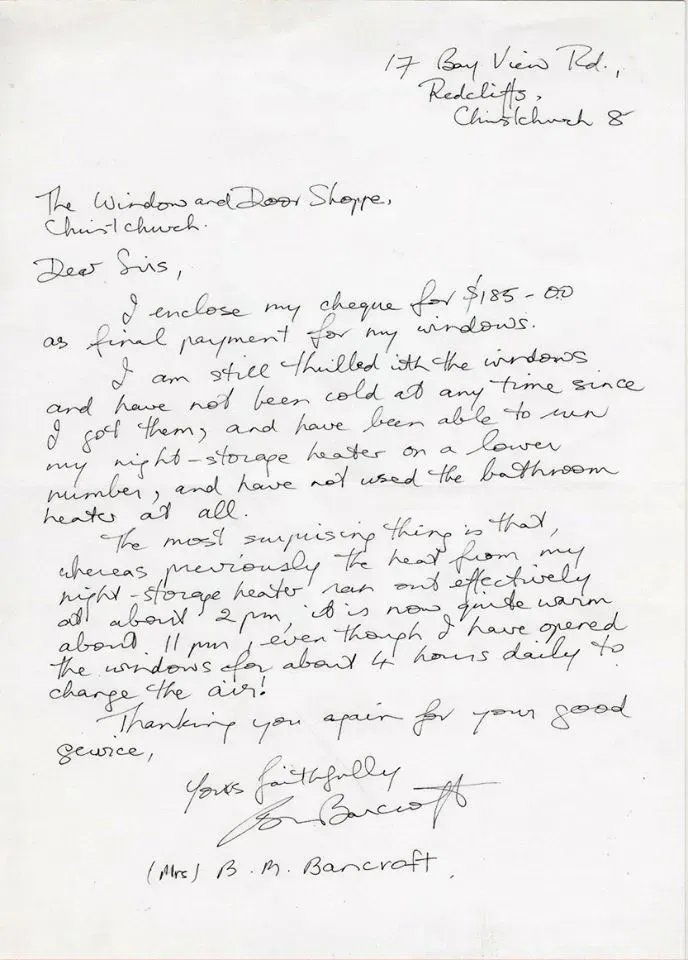 17 Bay View Rd.,
Redcliffs,
Christchurch 8
The Window and Door Shoppe,
Christchurch.
Dear Sirs,
I enclose my cheque for $185-00
as final payment for my windows.
I am still thrilled with the windows
and have not been cold at any time since
I got them, and have been able to run
my night-storage heater on a lower
number, and have not used the bathroom
heater at all.
The most surprising thing is that,
whereas previously the heat from my
night-storage heater ran out effectively
at about 2 pm, it is now quite warm
about 11 pm, even though I have opened
the windows for about 4 hours daily to
change the air!
Thanking you again for your good
service,
Yours faithfully
Bancroft
(Mrs) B. M. Bancroft.